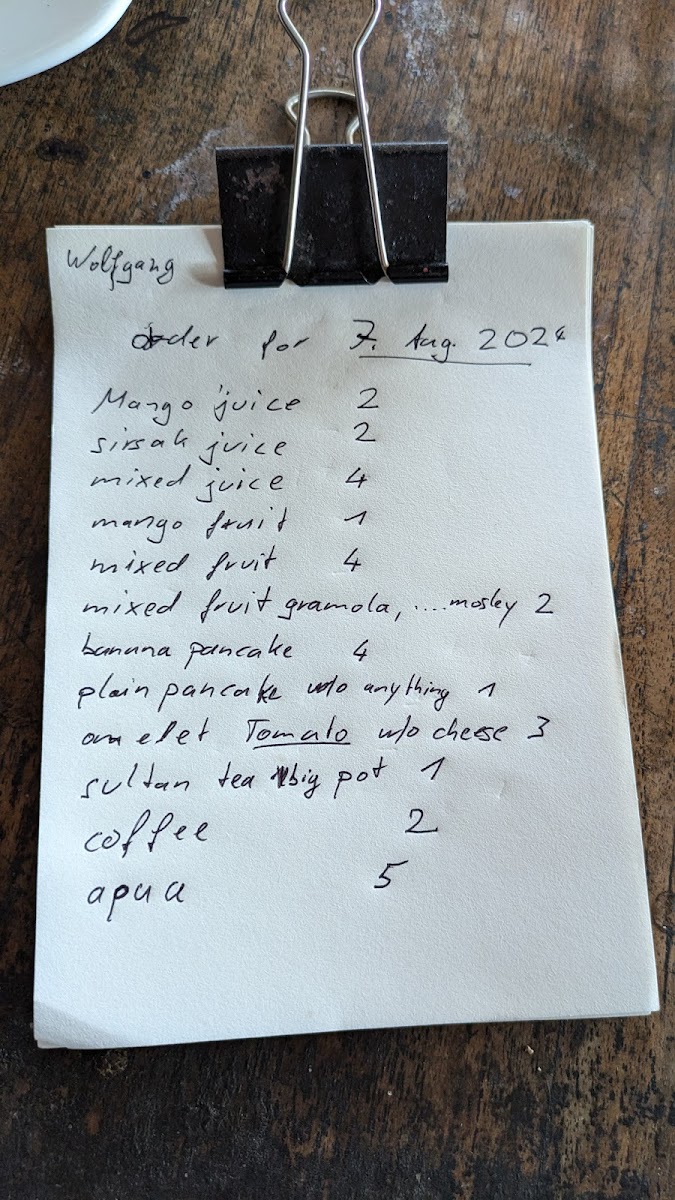 Wolfgang
order for 7. Aug. 2024
Mango juice 2
sirsak juice 2
mixed juice 4
mango fruit 1
mixed fruit 4
mixed fruit gramola, ....mosley 2
banana pancake 4
plain pancake w/o anything 1
omelet Tomato w/o cheese 3
sultan tea big pot 1
coffee 2
apua 5